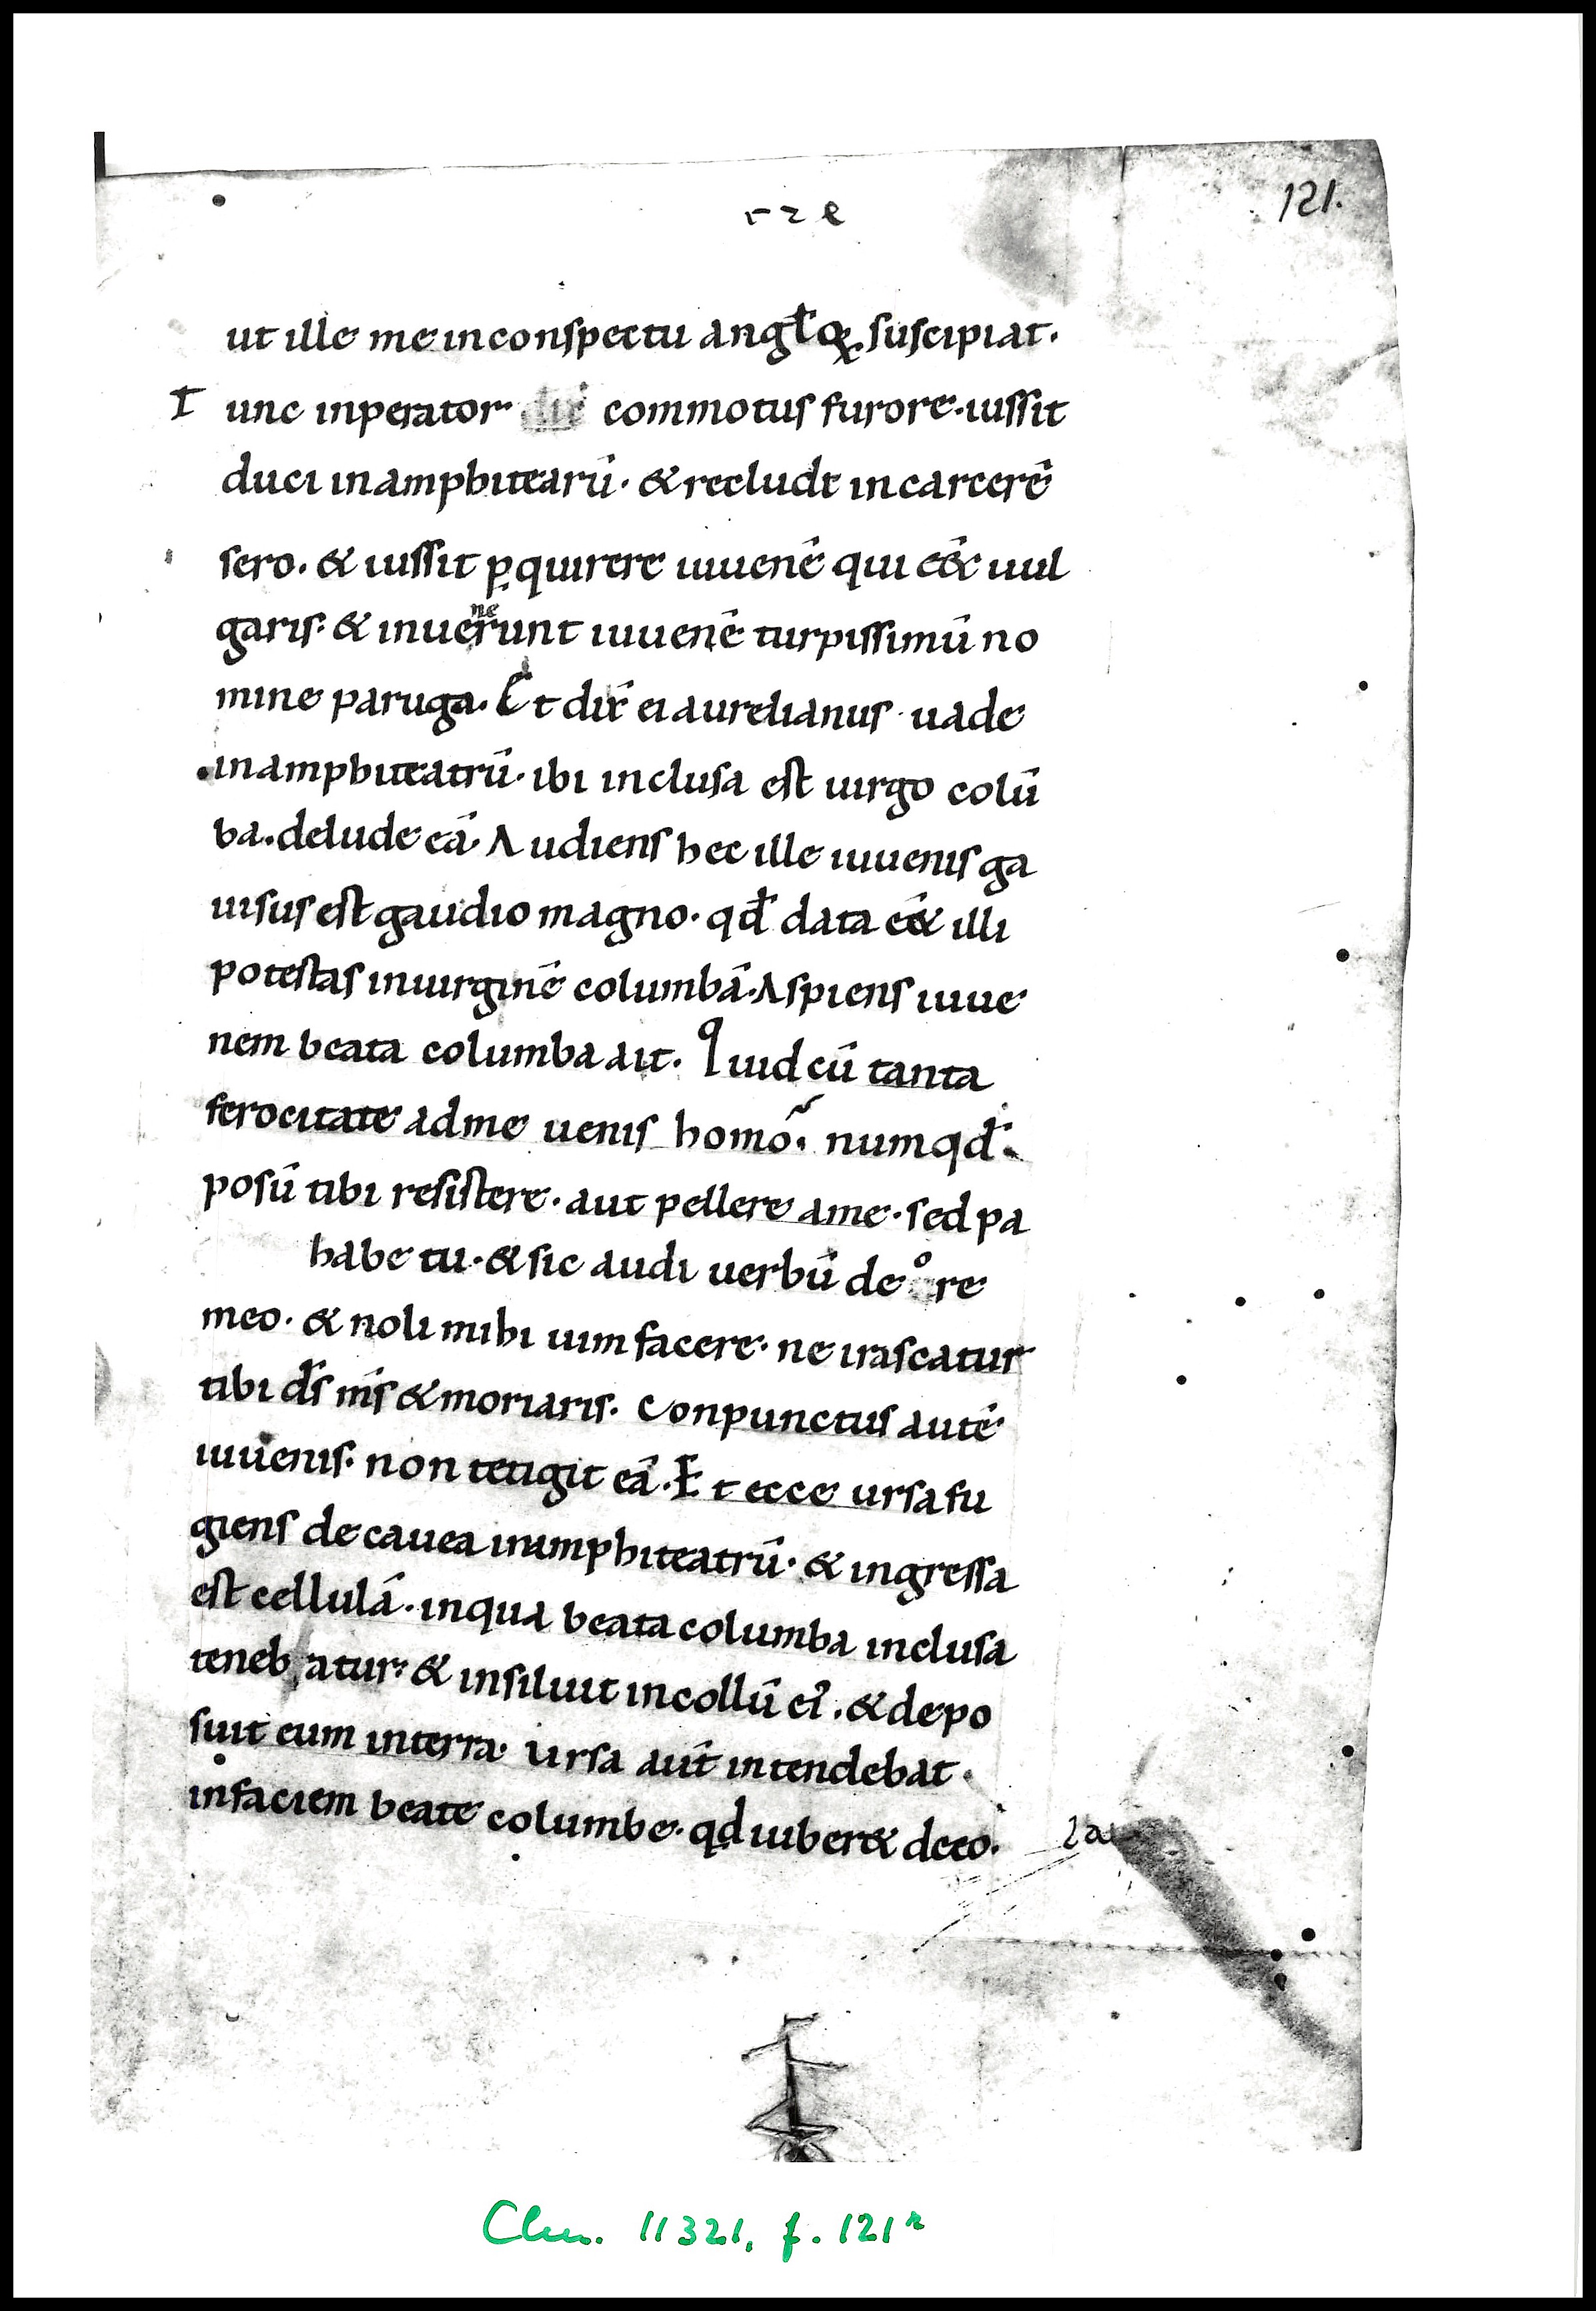 121.
ut ille me inconspectu angłoꝝ suscipiat·
T unc inperator dix̄ commotus furore· iussit
duci inamphitearū· & recludt incarcerē
sero· & iussit ꝑquirere iuuenē qui eēt uul
garis· & inuenerunt iuuenē turpissimū no
mine paruga· Et dix̄ ei aurelianus· uade
inamphiteatrū· ibi inclusa est uirgo colū
ba· delude eā· Audiens hec ille iuuenis ga
uisus est gaudio magno· qđ data eēt illi
potestas inuirginē columbā· Aspiens iuue
nem beata columba ait· Quid cū tanta
ferocitate adme uenis homo· numqđ
posū tibi resistere· aut pellere ame· sed pa
habe tu· & sic audi uerbū de ore
meo· & noli mihi uim facere· ne irascatur
tibi dс̄ mс̄ & moriaris· Conpunctus autē
iuuenis· non tetigit eā· Et ecce ursa fu
giens de cauea inamphiteatrū· & ingressa
est cellulā· inqua beata columba inclusa
tenebatur· & insiluit incollū ei᾿· & depo
suit eum interra· Ursa aut̄ intendebat·
infaciem beate columbe· qd iuber& deeo·
Clm. 11321, f. 121r